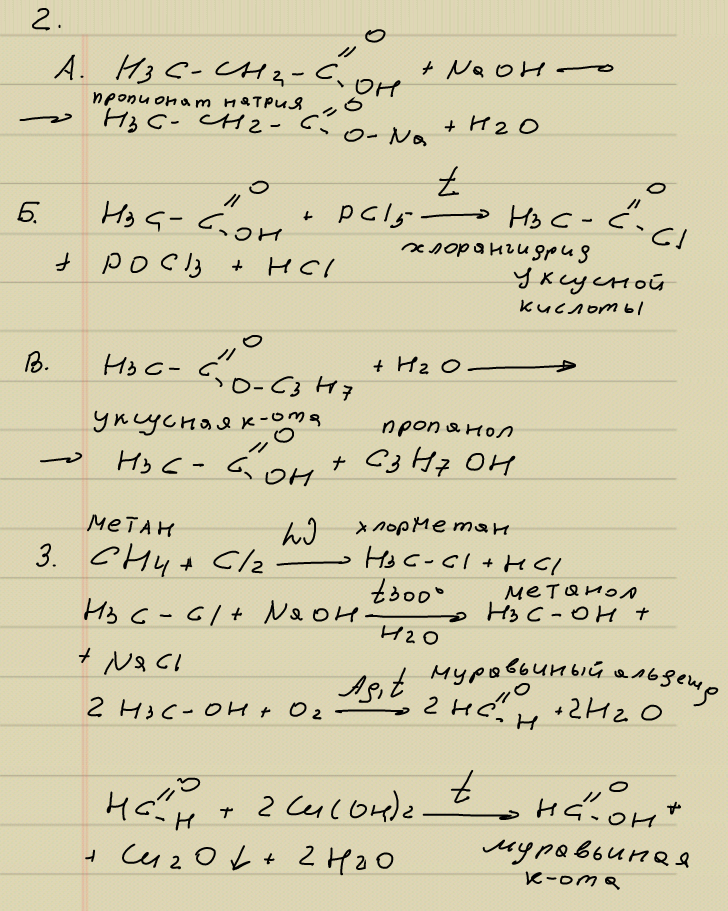 2.
А. H3C-CH2-C=O-OH + NaOH →
пропионат натрия
→ H3C-CH2-C=O-O-Na + H2O
Б. H3C-C=O-OH + PCl5 t→ H3C-C=O-Cl
хлорангидрид
+ POCl3 + HCl уксусной
кислоты
В. H3C-C=O-O-C3H7 + H2O →
уксусная к-ота пропанол
→ H3C-C=O-OH + C3H7OH
метан хлорметан
3. CH4 + Cl2 hν→ H3C-Cl + HCl
метанол
H3C-Cl + NaOH t300° H2O→ H3C-OH +
+ NaCl
муравьиный альдегид
2H3C-OH + O2 Ag,t→ 2HC=O-H + 2H2O
HC=O-H + 2Cu(OH)2 t→ HC=O-OH +
+ Cu2O↓ + 2H2O муравьиная
к-ота